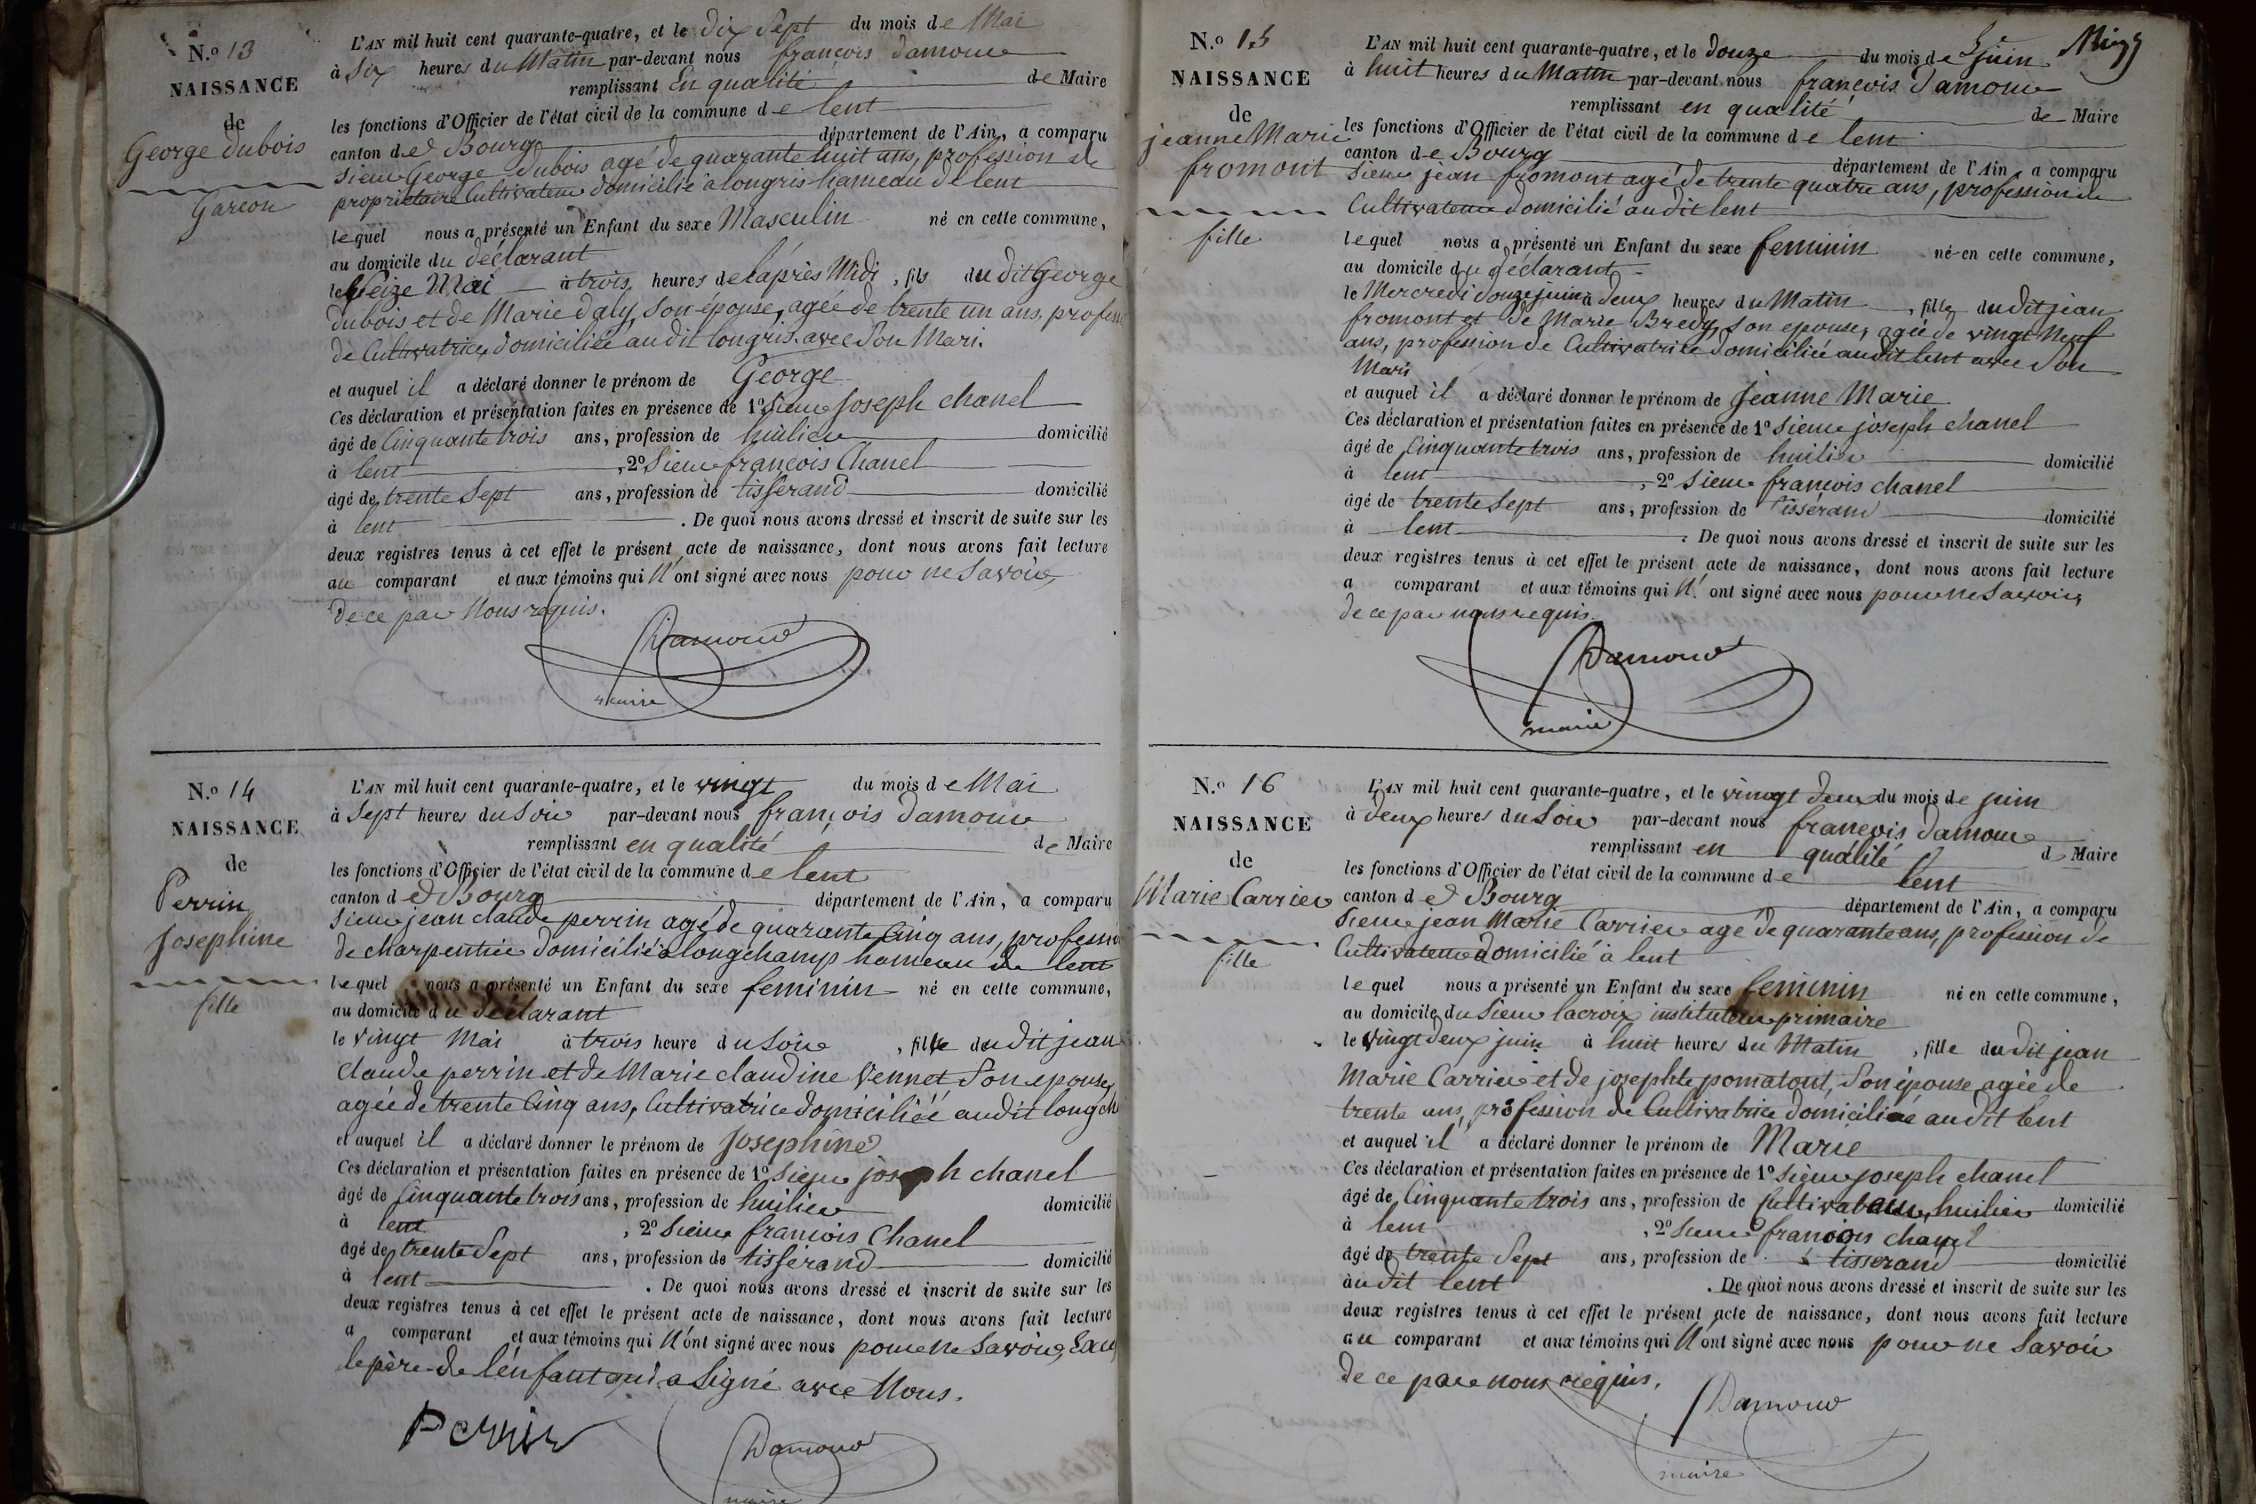 N.º 13
NAISSANCE
de
George Dubois
Garcon
L'AN mil huit cent quarante-quatre, et le dix Sept du mois de Mai
à Six heures du Matin par-devant nous françois damour
remplissant En qualité de Maire
les fonctions d'Officier de l'état civil de la commune de lent
canton de Bourg département de l'Ain, a comparu
Sieur George Dubois agé de quarante huit ans, profession de
propriétaire Cultivateur domicilié à longris hameau de lent
lequel nous a présenté un Enfant du sexe Masculin né en cette commune,
au domicile du déclarant
le Seize Mai à trois heures de l'après Midi, fils du dit George
dubois et de Marie daly, Son épouse, agée de trente un ans, profession
de Cultivatrice, domiciliée au dit longris avec Son Mari.
et auquel il a déclaré donner le prénom de George
Ces déclaration et présentation faites en présence de 1º Sieur Joseph chanel
âgé de Cinquante trois ans, profession de huilier domicilié
à lent, 2º Sieur françois Chanel
âgé de trente Sept ans, profession de tisserand domicilié
à lent. De quoi nous avons dressé et inscrit de suite sur les
deux registres tenus à cet effet le présent acte de naissance, dont nous avons fait lecture
au comparant et aux témoins qui N'ont signé avec nous pour ne Savoir,
de ce par Nous requis.
Damour
maire
N.º 14
NAISSANCE
de
Perrin
Josephine
fille
L'AN mil huit cent quarante-quatre, et le vingt du mois de Mai
à Sept heures du Soir par-devant nous françois damour
remplissant en qualité de Maire
les fonctions d'Officier de l'état civil de la commune de lent
canton de Bourg département de l'Ain, a comparu
Sieur jean claude perrin agé de quarante Cinq ans, profession
de charpentier domicilié à longchamp hameau de lent
lequel nous a présenté un Enfant du sexe feminin né en cette commune,
au domicile du déclarant
le vingt Mai à trois heure du Soir, fille du dit jean
claude perrin et de Marie claudine Vennet Son epouse,
agée de trente Cinq ans, Cultivatrice domiciliée au dit longch
et auquel il a déclaré donner le prénom de Josephine
Ces déclaration et présentation faites en présence de 1º Sieur joseph chanel
âgé de Cinquante trois ans, profession de huilier domicilié
à lent, 2º Sieur francois Chanel
âgé de trente Sept ans, profession de tisserand domicilié
à lent. De quoi nous avons dressé et inscrit de suite sur les
deux registres tenus à cet effet le présent acte de naissance, dont nous avons fait lecture
a comparant et aux témoins qui N'ont signé avec nous pour ne Savoir,
le père de l'enfant qui a Signé avec Nous.
Perrin
Damour
maire
N.º 15
NAISSANCE
de
jeanne Marie
fromont
fille
L'AN mil huit cent quarante-quatre, et le douze du mois de juin
à huit heures du Matin par-devant nous françois damour
remplissant en qualité de Maire
les fonctions d'Officier de l'état civil de la commune de lent
canton de Bourg département de l'Ain, a comparu
Sieur jean fromont agé de trente quatre ans, profession de
Cultivateur domicilié au dit lent
lequel nous a présenté un Enfant du sexe feminin né en cette commune,
au domicile du déclarant
le Mercredi douze juin à deux heures du Matin, fille du dit jean
fromont et de Marie Bredy, Son epouse, agée de vingt Neuf
ans, profession de Cultivatrice domiciliée au dit lent avec Son
Mari
et auquel il a déclaré donner le prénom de Jeanne Marie
Ces déclaration et présentation faites en présence de 1º Sieur joseph chanel
âgé de Cinquante trois ans, profession de huilier domicilié
à lent, 2º Sieur francois chanel
âgé de trente Sept ans, profession de tisserand domicilié
à lent. De quoi nous avons dressé et inscrit de suite sur les
deux registres tenus à cet effet le présent acte de naissance, dont nous avons fait lecture
a comparant et aux témoins qui N'ont signé avec nous pour ne Savoir,
de ce par nous requis.
Damour
maire
N.º 16
NAISSANCE
de
Marie Carrier
fille
L'AN mil huit cent quarante-quatre, et le vingt deux du mois de juin
à deux heures du Soir par-devant nous françois damour
remplissant en qualité d Maire
les fonctions d'Officier de l'état civil de la commune de lent
canton de Bourg département de l'Ain, a comparu
Sieur jean Marie Carrier agé de quarante ans, profession de
Cultivateur domicilié à lent
lequel nous a présenté un Enfant du sexe feminin né en cette commune,
au domicile du Sieur lacroix instituteur primaire
le vingt deux juin à huit heures du Matin, fille du dit jean
Marie Carrier et de josephte pomatout, Son épouse agée de
trente ans, profession de Cultivatrice domiciliée au dit lent
et auquel il a déclaré donner le prénom de Marie
Ces déclaration et présentation faites en présence de 1º Sieur joseph chanel
âgé de Cinquante trois ans, profession de Cultivateur, huilier domicilié
à lent, 2º Sieur francois chanel
âgé de trente Sept ans, profession de tisserand domicilié
à u dit lent. De quoi nous avons dressé et inscrit de suite sur les
deux registres tenus à cet effet le présent acte de naissance, dont nous avons fait lecture
au comparant et aux témoins qui N'ont signé avec nous pour ne Savoir
de ce par nous requis.
Damour
maire